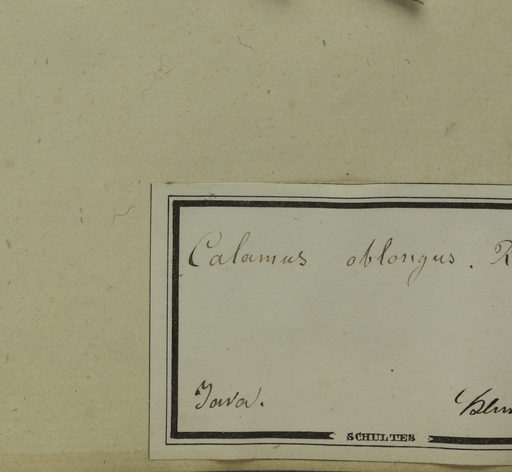 Calamus oblongus. R
Java.
SCHULTES